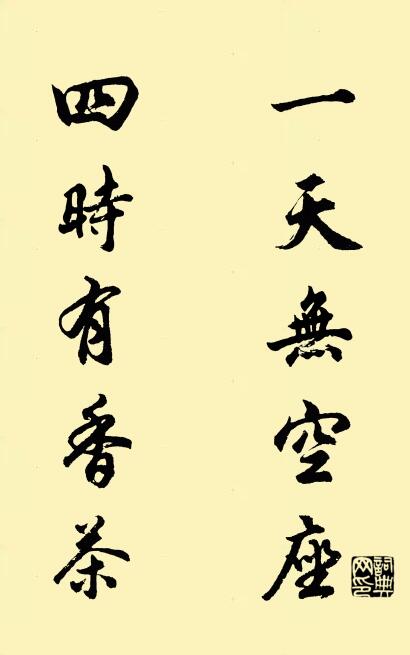 一天無空座
四時有香茶
詞典
网印